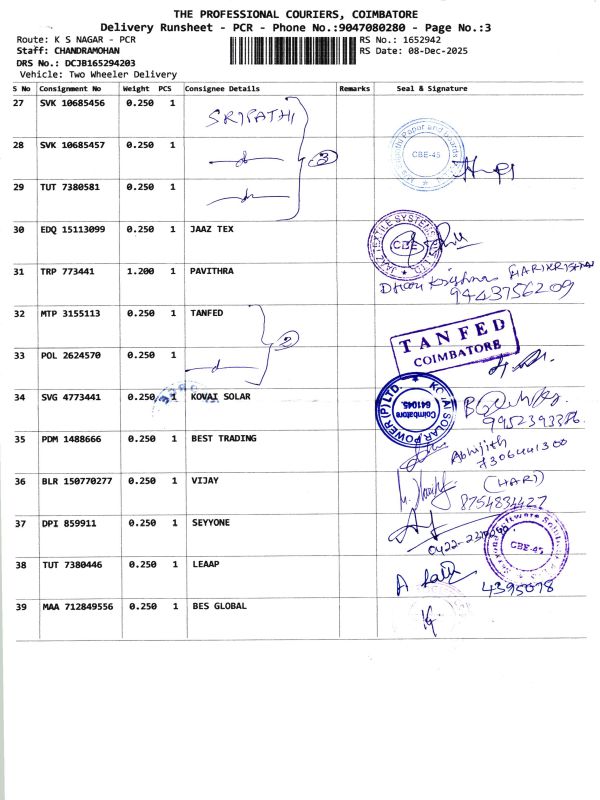 THE PROFESSIONAL COURIERS, COIMBATORE
Delivery Runsheet - PCR - Phone No.:9047080280 - Page No.:3
Route: K S NAGAR - PCR
RS No.: 1652942
Staff: CHANDRAMOHAN
RS Date: 08-Dec-2025
DRS No.: DCJB165294203
Vehicle: Two Wheeler Delivery
S No Consignment No Weight PCS Consignee Details Remarks Seal & Signature
27 SVK 10685456 0.250 1 SRIPATHI
28 SVK 10685457 0.250 1
3
CBE-45
29 TUT 7380581 0.250 1
30 EDQ 15113099 0.250 1 JAAZ TEX
JAAZ TEXTILE SYSTEMS
CBE
31 TRP 773441 1.200 1 PAVITHRA
HARIKRISHNAN
9443756209
32 MTP 3155113 0.250 1 TANFED
2
TANFED
COIMBATORE
33 POL 2624570 0.250 1
34 SVG 4773441 0.250 1 KOVAI SOLAR
KOVAI SOLAR POWER (P) LTD.
Coimbatore
641045.
9952393386
35 PDM 1488666 0.250 1 BEST TRADING
Abhijith
7306441300
36 BLR 150770277 0.250 1 VIJAY
(HARI)
8754834427
37 DPI 859911 0.250 1 SEYYONE
CBE-45
38 TUT 7380446 0.250 1 LEAAP
4395078
39 MAA 712849556 0.250 1 BES GLOBAL